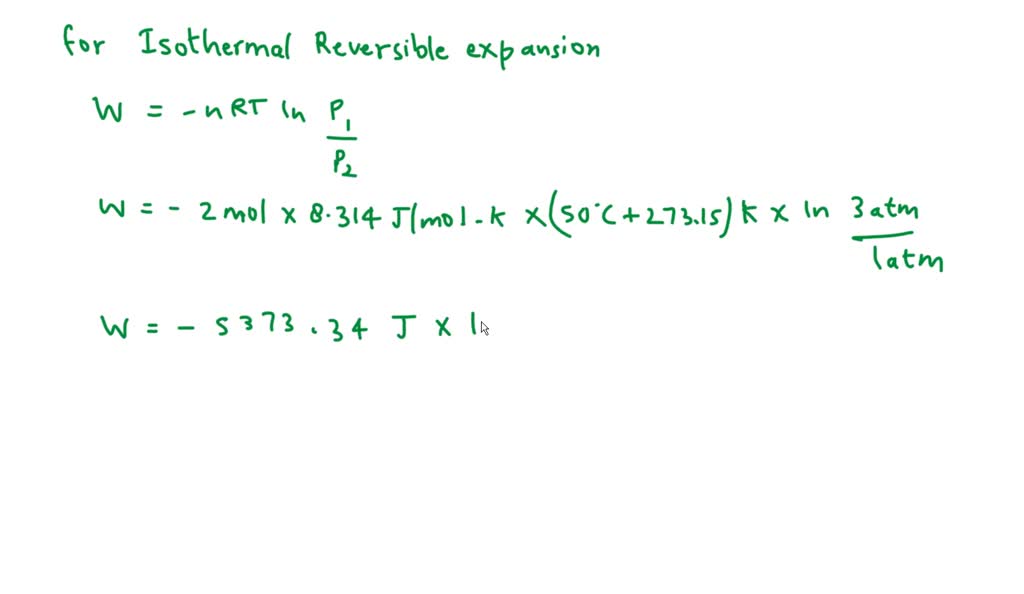 for Isothermal Reversible expansion
W = - nRT ln P1
P2
W = - 2 mol x 8.314 J/mol-k x (50°C + 273.15) k x ln 3 atm
1 atm
W = - 5373.34 J x l